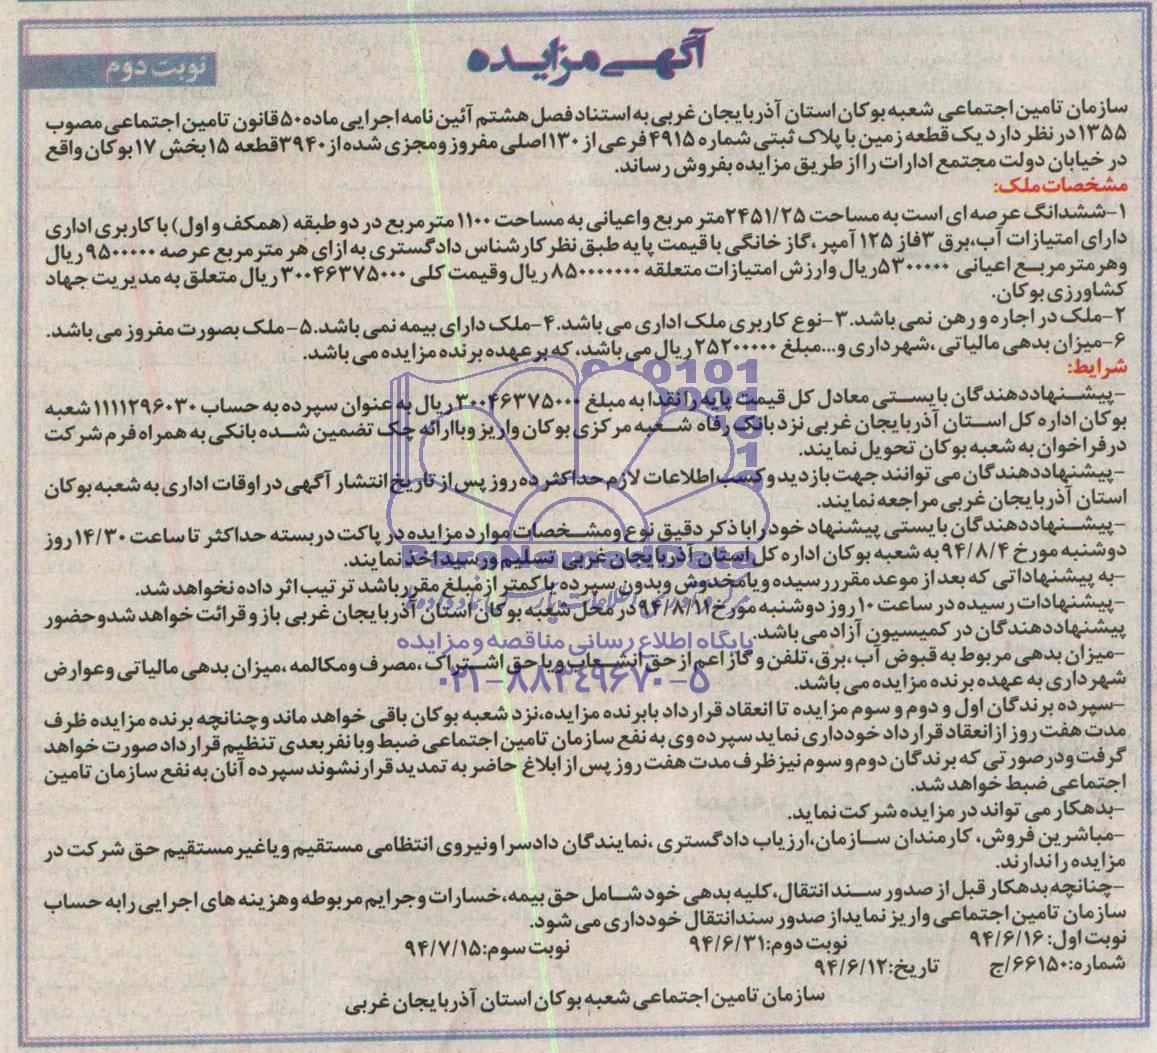 آگهی مزایده
نوبت دوم
سازمان تامین اجتماعی شعبه بوکان استان آذربایجان غربی به استناد فصل هشتم آئین نامه اجرایی ماده ۵۰ قانون تامین اجتماعی مصوب
۱۳۵۵ در نظر دارد یک قطعه زمین با پلاک ثبتی شماره ۴۹۱۵ فرعی از ۱۳۰ اصلی مفروز ومجزی شده از ۳۹۴۰ قطعه ۱۵ بخش ۱۷ بوکان واقع
در خیابان دولت مجتمع ادارات را از طریق مزایده بفروش رساند.
مشخصات ملک:
۱-ششدانگ عرصه ای است به مساحت ۲۴۵۱/۲۵ متر مربع واعیانی به مساحت ۱۱۰۰ مترمربع در دو طبقه (همکف و اول) با کاربری اداری
دارای امتیازات آب،برق ۳ فاز ۱۲۵ آمپر ،گاز خانگی با قیمت پایه طبق نظر کارشناس دادگستری به ازای هر مترمربع عرصه ۹۵۰۰۰۰۰ ریال
وهر مترمربع اعیانی ۵۳۰۰۰۰۰ ریال وارزش امتیازات متعلقه ۸۵۰۰۰۰۰۰۰ ریال وقیمت کلی ۳۰۰۴۶۳۷۵۰۰۰ ریال متعلق به مدیریت جهاد
کشاورزی بوکان.
۲-ملک در اجاره و رهن نمی باشد. ۳-نوع کاربری ملک اداری می باشد. ۴-ملک دارای بیمه نمی باشد. ۵- ملک بصورت مفروز می باشد.
۶-میزان بدهی مالیاتی ،شهرداری و... مبلغ ۲۵۲۰۰۰۰۰ ریال می باشد، که بر عهده برنده مزایده می باشد.
شرایط:
-پیشنهاددهندگان بایستی معادل کل قیمت پایه را نقدا به مبلغ ۳۰۰۴۶۳۷۵۰۰۰ ریال به عنوان سپرده به حساب ۱۱۱۱۲۹۶۰۳۰ شعبه
بوکان اداره کل استان آذربایجان غربی نزد بانک رفاه شعبه مرکزی بوکان واریز وباارائه چک تضمین شده بانکی به همراه فرم شرکت
در فراخوان به شعبه بوکان تحویل نمایند.
-پیشنهاددهندگان می توانند جهت بازدید و کسب اطلاعات لازم حداکثر ده روز پس از تاریخ انتشار آگهی در اوقات اداری به شعبه بوکان
استان آذربایجان غربی مراجعه نمایند.
-پیشنهاددهندگان بایستی پیشنهاد خود را با ذکر دقیق نوع ومشخصات موارد مزایده در پاکت دربسته حداکثر تا ساعت ۱۴/۳۰ روز
دوشنبه مورخ ۹۴/۸/۴ به شعبه بوکان اداره کل استان آذربایجان غربی تسلیم ورسید اخذ نمایند.
-به پیشنهاداتی که بعد از موعد مقرر رسیده ویا مخدوش وبدون سپرده یا کمتر از مبلغ مقرر باشد ترتیب اثر داده نخواهد شد.
-پیشنهادات رسیده در ساعت ۱۰ روز دوشنبه مورخ ۹۴/۸/۱۱ در محل شعبه بوکان استان آذربایجان غربی باز و قرائت خواهد شد وحضور
پیشنهاددهندگان در کمیسیون آزاد می باشد.
پایگاه اطلاع رسانی مناقصه و مزایده
-میزان بدهی مربوط به قبوض آب ،برق، تلفن و گاز اعم از حق انشعاب ویا حق اشتراک ،مصرف ومکالمه ،میزان بدهی مالیاتی وعوارض
شهرداری به عهده برنده مزایده می باشد.
۰۲۱-۸۸۳۴۹۶۷۰-۵
-سپرده برندگان اول و دوم و سوم مزایده تا انعقاد قرارداد بابرنده مزایده،نزد شعبه بوکان باقی خواهد ماند وچنانچه برنده مزایده ظرف
مدت هفت روز از انعقاد قرارداد خودداری نماید سپرده وی به نفع سازمان تامین اجتماعی ضبط وبا نفر بعدی تنظیم قرارداد صورت خواهد
گرفت ودر صورتی که برندگان دوم و سوم نیز ظرف مدت هفت روز پس از ابلاغ حاضر به تمدید قرار نشوند سپرده آنان به نفع سازمان تامین
اجتماعی ضبط خواهد شد.
-بدهکار می تواند در مزایده شرکت نماید.
-مباشرین فروش، کارمندان سازمان،ارزیاب دادگستری ،نمایندگان دادسرا ونیروی انتظامی مستقیم ویاغیر مستقیم حق شرکت در
مزایده را ندارند.
-چنانچه بدهکار قبل از صدور سند انتقال، کلیه بدهی خود شامل حق بیمه،خسارات وجرایم مربوطه وهزینه های اجرایی رابه حساب
سازمان تامین اجتماعی واریز نمایداز صدور سندانتقال خودداری می شود.
نوبت اول: ۹۴/۶/۱۶ نوبت دوم: ۹۴/۶/۳۱ نوبت سوم: ۹۴/۷/۱۵
شماره: ۶۶۱۵۰/ج تاریخ: ۹۴/۶/۱۲
سازمان تامین اجتماعی شعبه بوکان استان آذربایجان غربی